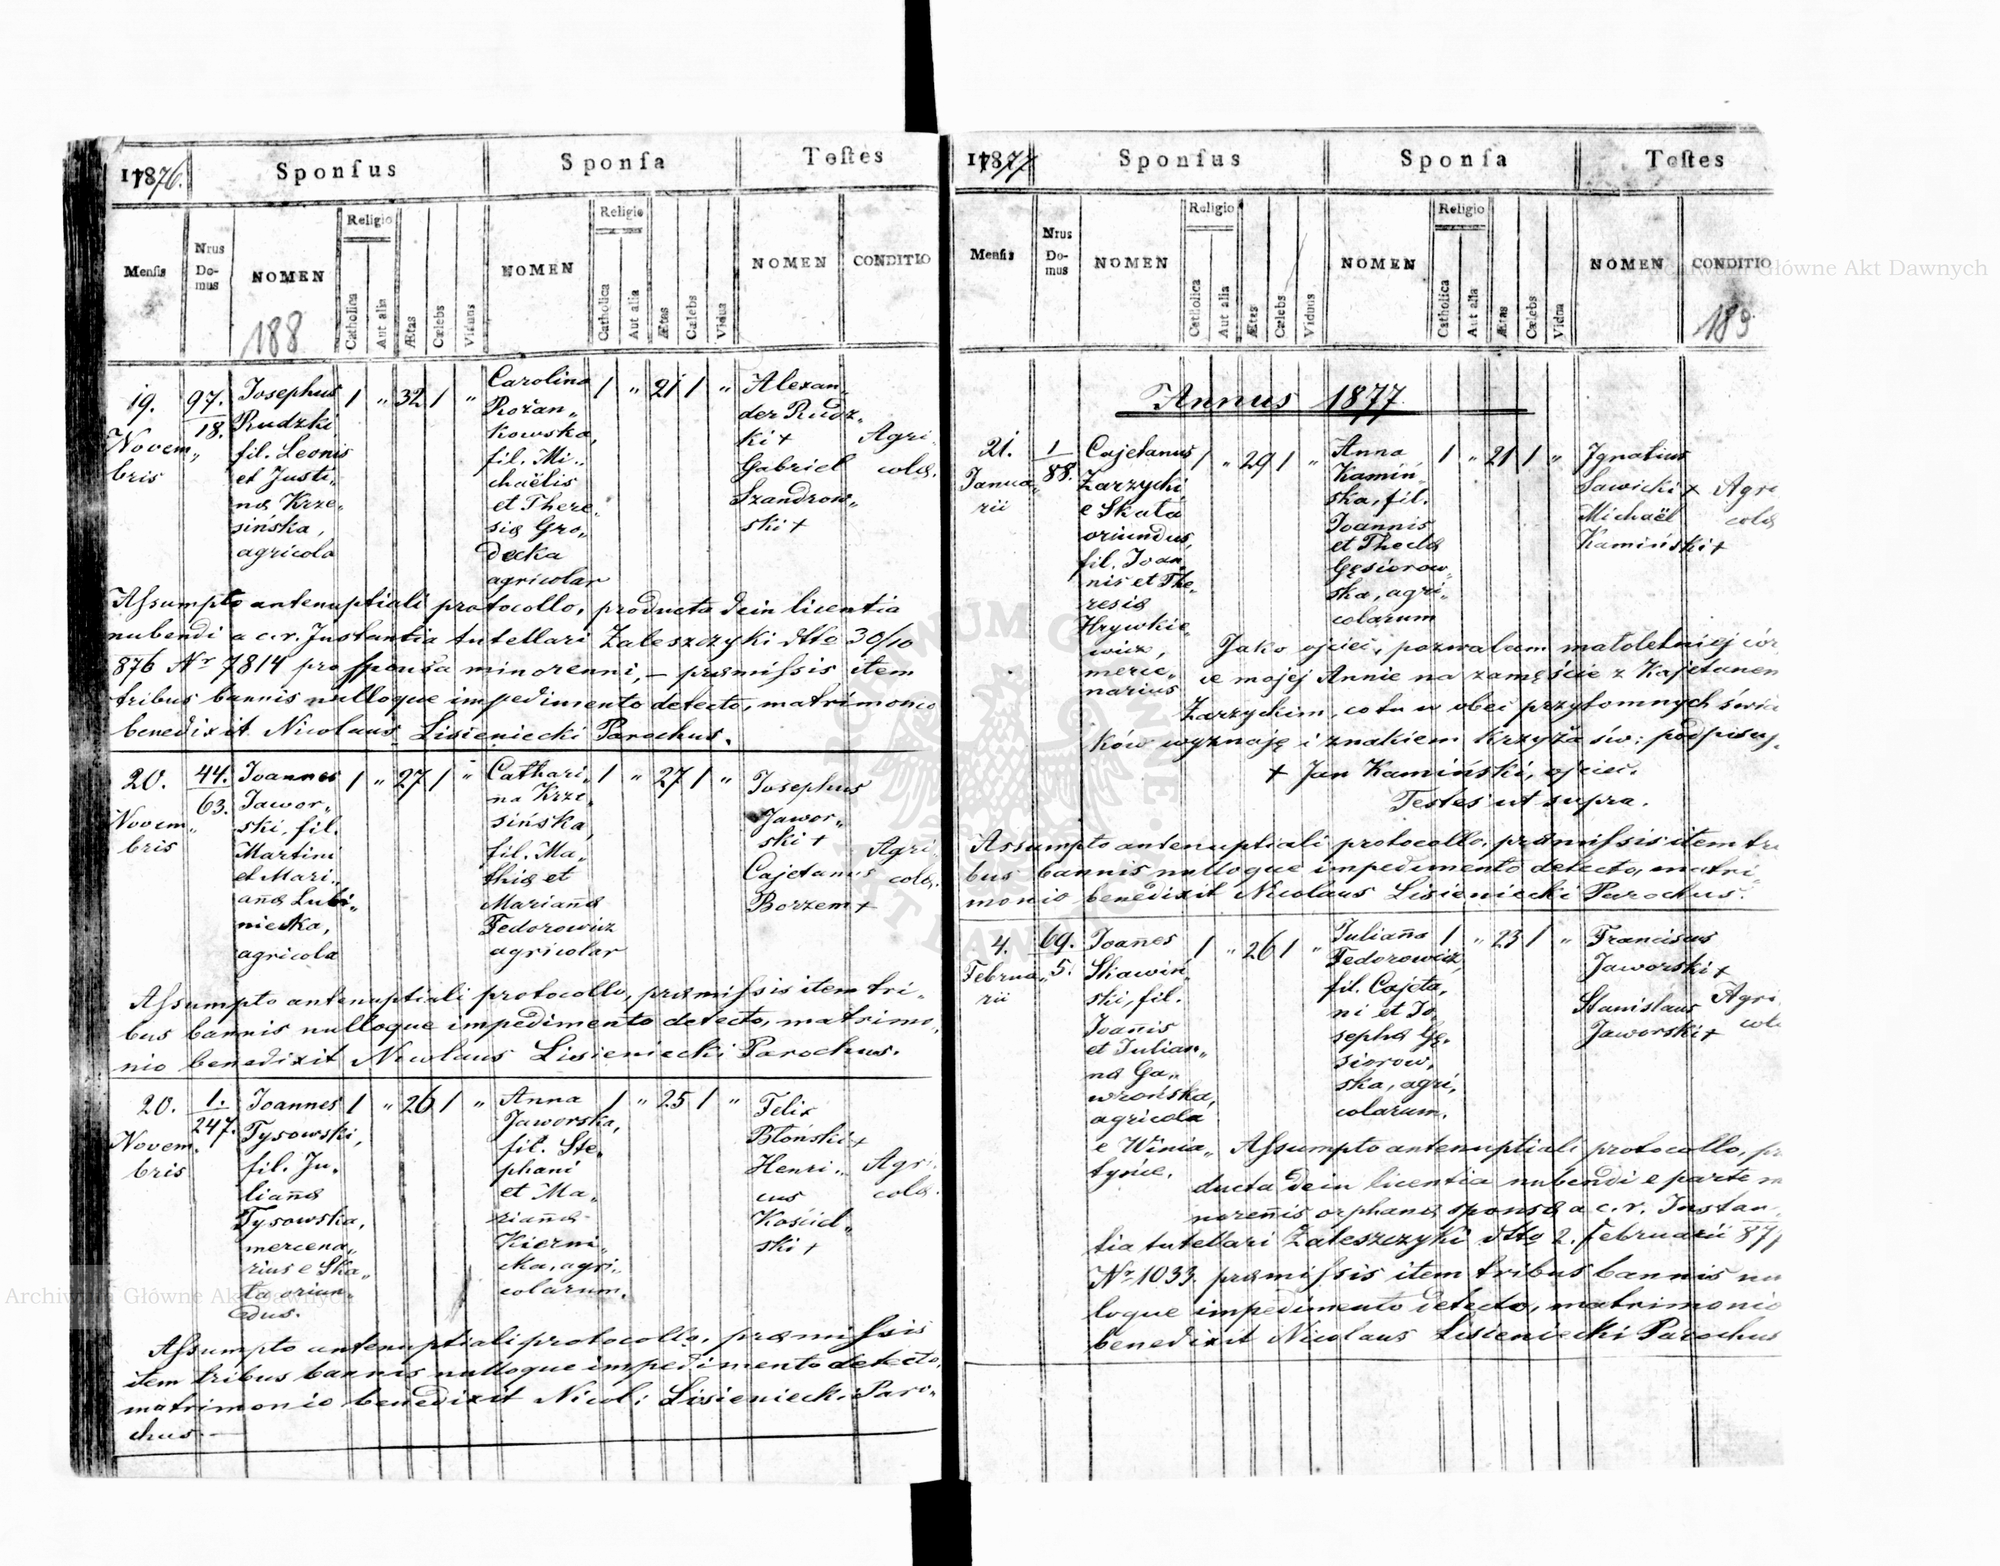 1876. Sponsus Sponsa Testes
Mensis Nrus Domus NOMEN Religio Catholica Aut alia Ætas Cælebs Viduus NOMEN Religio Catholica Aut alia Ætas Cælebs Vidua NOMEN CONDITIO
188
19.
Novem„
bris
97.
18.
Josephus
Rudzki
fil. Leonis
et Justi„
næ Krze„
sińska,
agricola
1 „ 32 1 „
Carolina
Rożan„
kowska,
fil. Mi„
chaëlis
et There„
siæ Gro„
decka
agricolar
1 „ 21 1 „
Alexan„
der Rudz„
ki +
Gabriel
Szandrow„
ski +
Agri„
colæ.
Assumpto antenuptiali protocollo, producta dein licentia
nubendi a c.r. Instantia tutellari Zaleszczyki dtto 30/10
876 Nr 7814 pro sponsa minorenni, – præmissis item
tribus bannis nulloque impedimento detecto, matrimonio
benedixit Nicolaus Lisieniecki Parochus.
20.
Novem„
bris
44.
63.
Joannes
Jawor„
ski, fil.
Martini
et Mari„
añæ Lubi„
niecka,
agricola
1 „ 27 1 „
Cathari„
na Krze„
sińska,
fil. Ma„
thiæ et
Mariañæ
Fedorowicz
agricolar
1 „ 27 1 „
Josephus
Jawor„
ski +
Cajetanus
Borzem +
Agri„
colæ.
Assumpto antenuptiali protocollo, præmissis item tri„
bus bannis nulloque impedimento detecto, matrimo„
nio benedixit Nicolaus Lisieniecki Parochus.
20.
Novem„
bris
1.
247.
Joannes
Tysowski,
fil. Ju„
liañæ
Tysowska,
mercena„
rius e Ska„
ta oriun„
dus.
1 „ 26 1 „
Anna
Jaworska,
fil. Ste„
phani
et Ma„
riañæ
Kierni„
cka, agri„
colarum.
1 „ 25 1 „
Felix
Błoński +
Henri„
cus
Kościel„
ski +
Agri„
colæ.
Assumpto antenuptiali protocollo, præmissis
item tribus bannis nulloque impedimento detecto,
matrimonio benedixit Nicol: Lisieniecki Paro„
chus. –
1877 Sponsus Sponsa Testes
Mensis Nrus Domus NOMEN Religio Catholica Aut alia Ætas Cælebs Viduus NOMEN Religio Catholica Aut alia Ætas Cælebs Vidua NOMEN CONDITIO
189
Annus 1877.
21.
Janua„
rii
1
88.
Cajetanus
Zarzycki
e Skata
oriundus,
fil. Joan„
nis et The„
resiæ
Hrywkie„
wicz,
merce„
narius
1 „ 29 1 „
Anna
Kamiń„
ska, fil.
Joannis
et Theclæ
Gęsiorow„
ska, agri„
colarum
1 „ 21 1 „
Ignatius
Sawicki +
Michaël
Kamiński +
Agri
colæ
Jako ojciec, pozwalam małoletniej cór„
ce mojej Annie na zamęście z Kajetanem
Zarzyckim, co tu w obec przytomnych świa
ków wyznaję i znakiem krzyża św: podpisuj„
+ Jan Kamiński, ojciec.
Testes ut supra.
Assumpto antenuptiali protocollo, præmissis item tri
bus bannis nulloque impedimento detecto, matri„
monio benedixit Nicolaus Lisieniecki Parochus.
4.
Februa„
rii
69.
5.
Joañes
Skawiń„
ski, fil.
Joañis
et Julian„
næ Ga„
wrońska,
agricola
e Winia„
tyńce.
1 „ 26 1 „
Juliaña
Fedorowicz,
fil. Cajeta„
ni et Jo„
sephæ Gę„
siorow„
ska, agri„
colarum.
1 „ 23 1 „
Franciscus
Jaworski +
Stanislaus
Jaworski +
Agri
colæ
Assumpto antenuptiali protocollo, pr
ducta dein licentia nubendi e parte m
noreñis orphanæ sponsæ a c.r. Instan„
tia tutellari Zaleszczyki dtto 2. Februarii 877
Nr 1033. præmissis item tribus bannis nu
loque impedimento detecto, matrimonio
benedixit Nicolaus Lisieniecki Parochus
Archiwum Główne Akt Dawnych
Archiwum Główne Akt Dawnych
ARCHIWUM GŁÓWNE AKT DAWNYCH